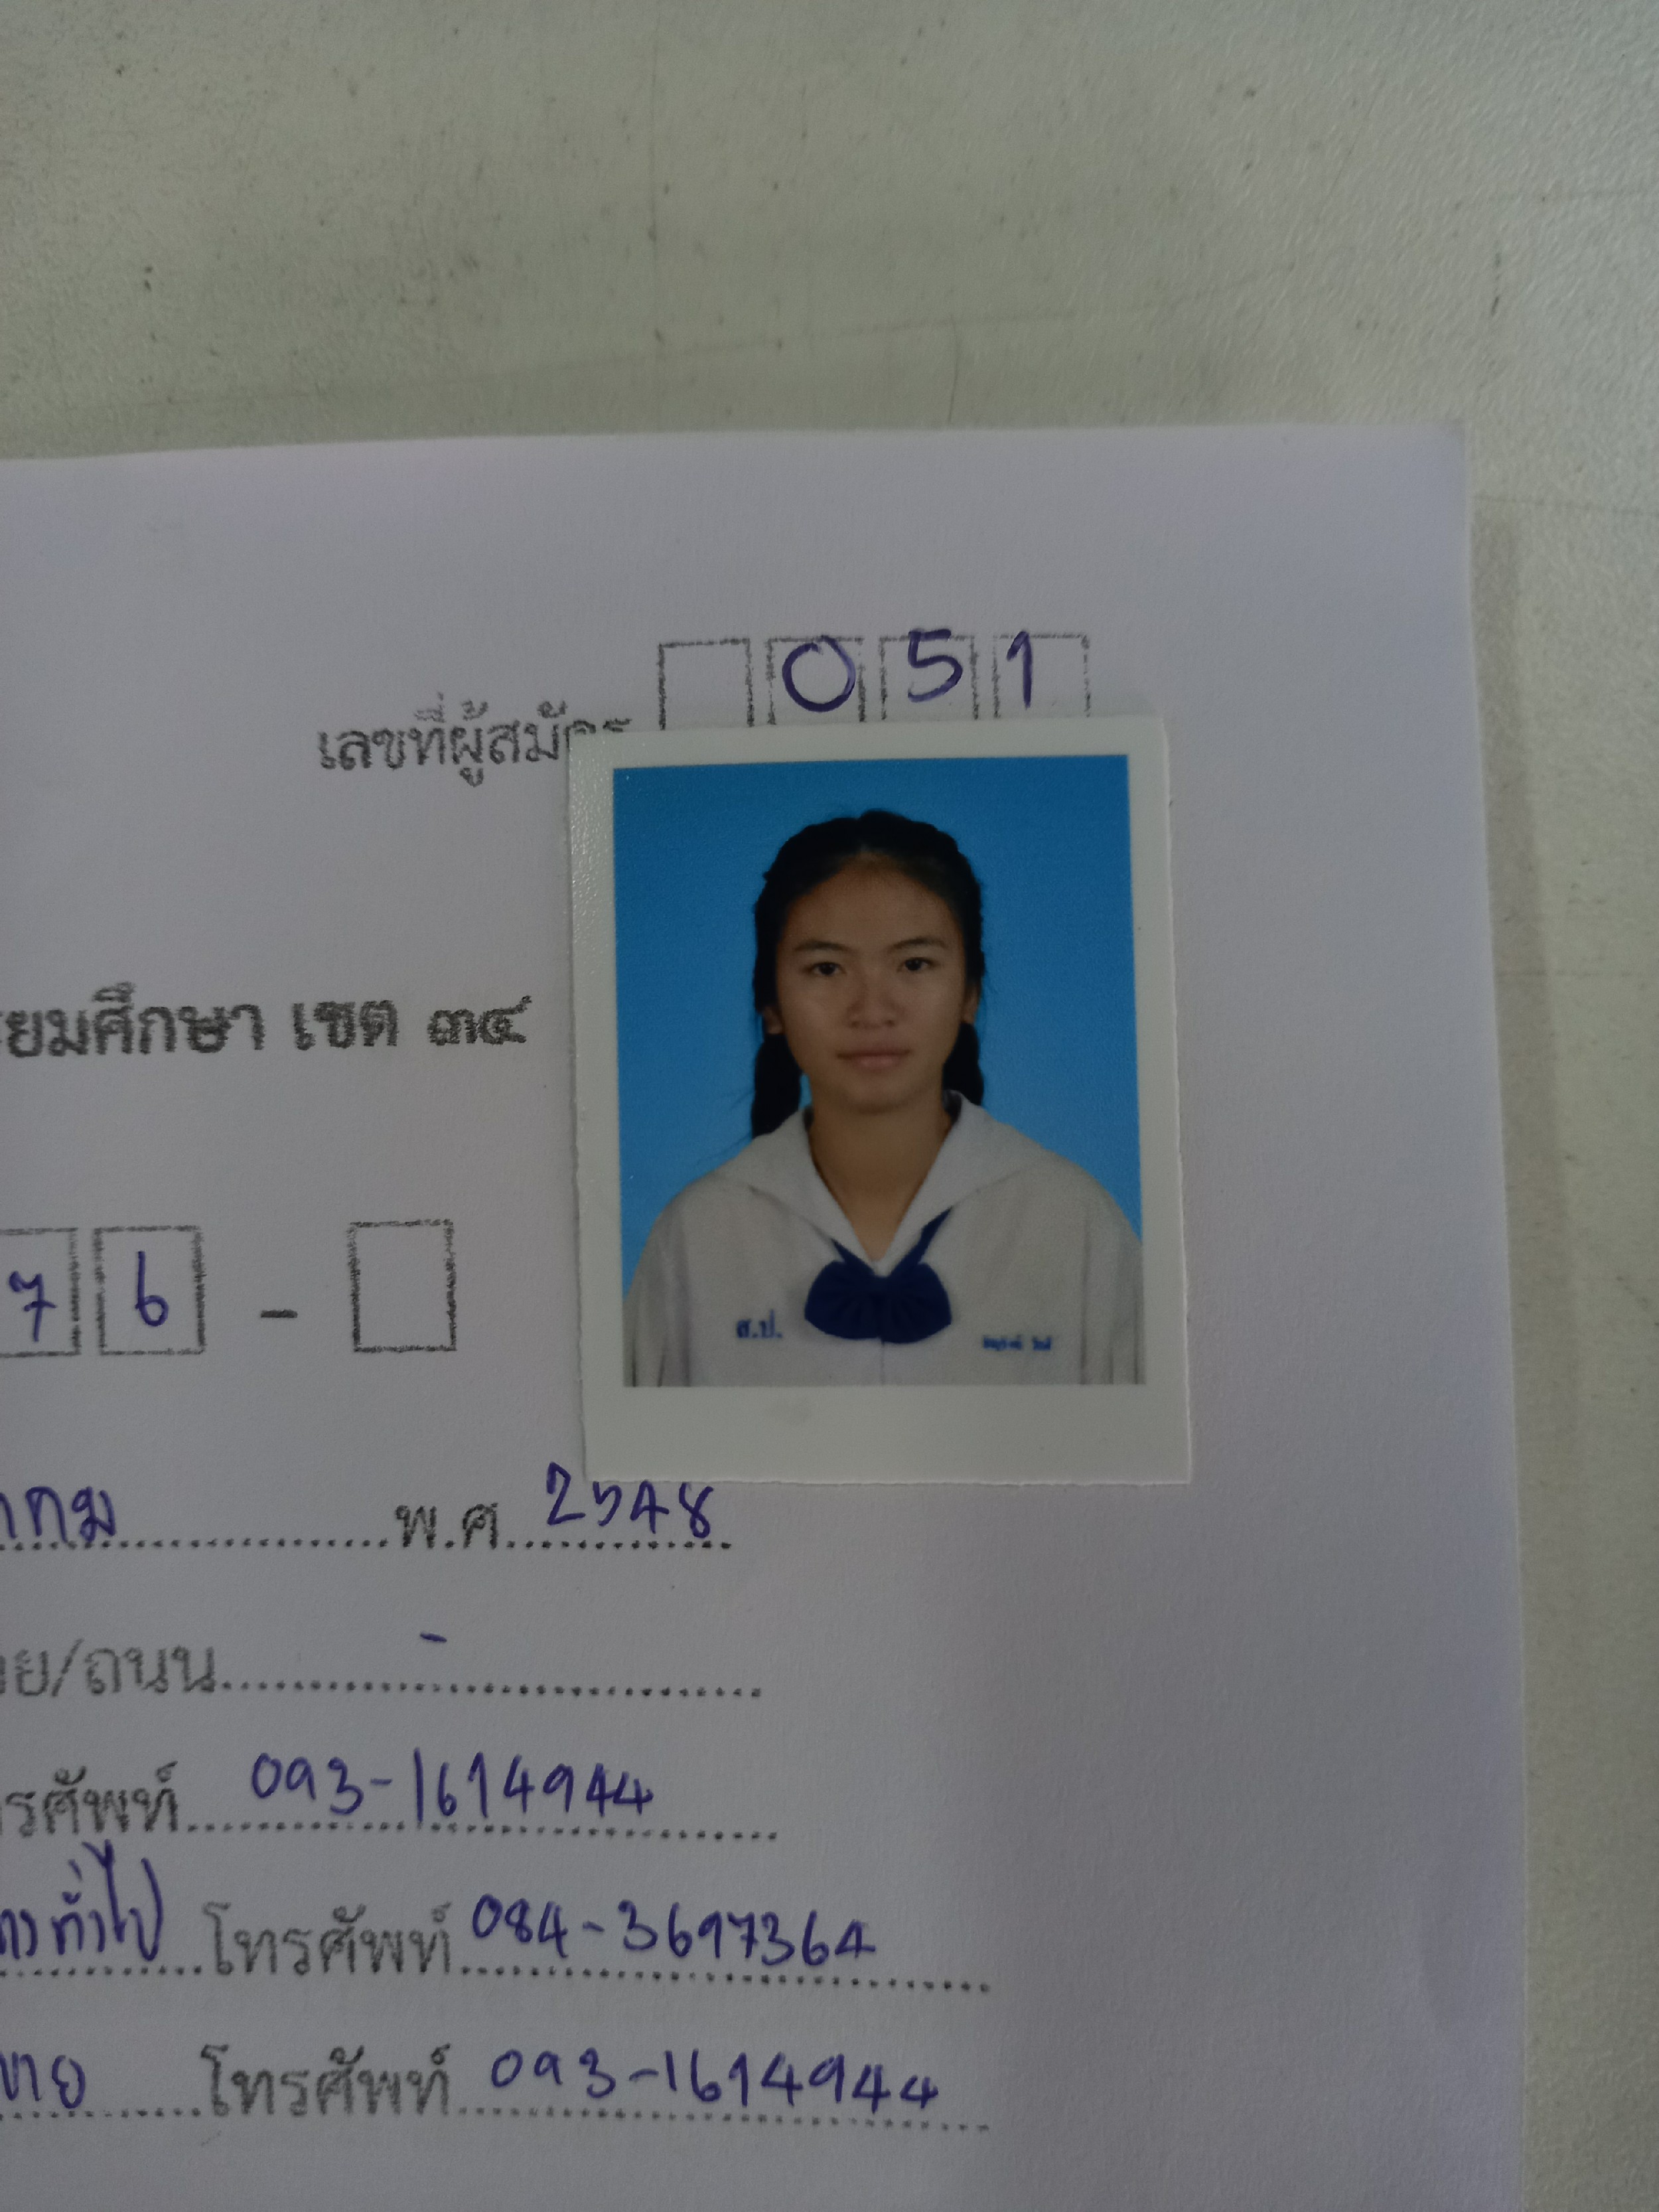 051
เลขที่ผู้สมัคร
ยมศึกษา เขต ๓๔
76 -
ส.ป.
าคม พ.ศ. 2548
ย/ถนน -
รศัพท์ 093-1614944
ทั่วไป โทรศัพท์ 084-3697364
ขาย โทรศัพท์ 093-1614944